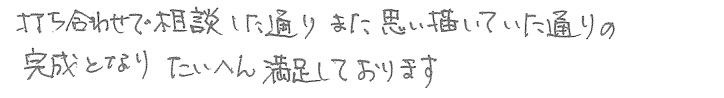 打ち合わせで相談した通り また思い描いていた通りの
完成となり たいへん満足しております